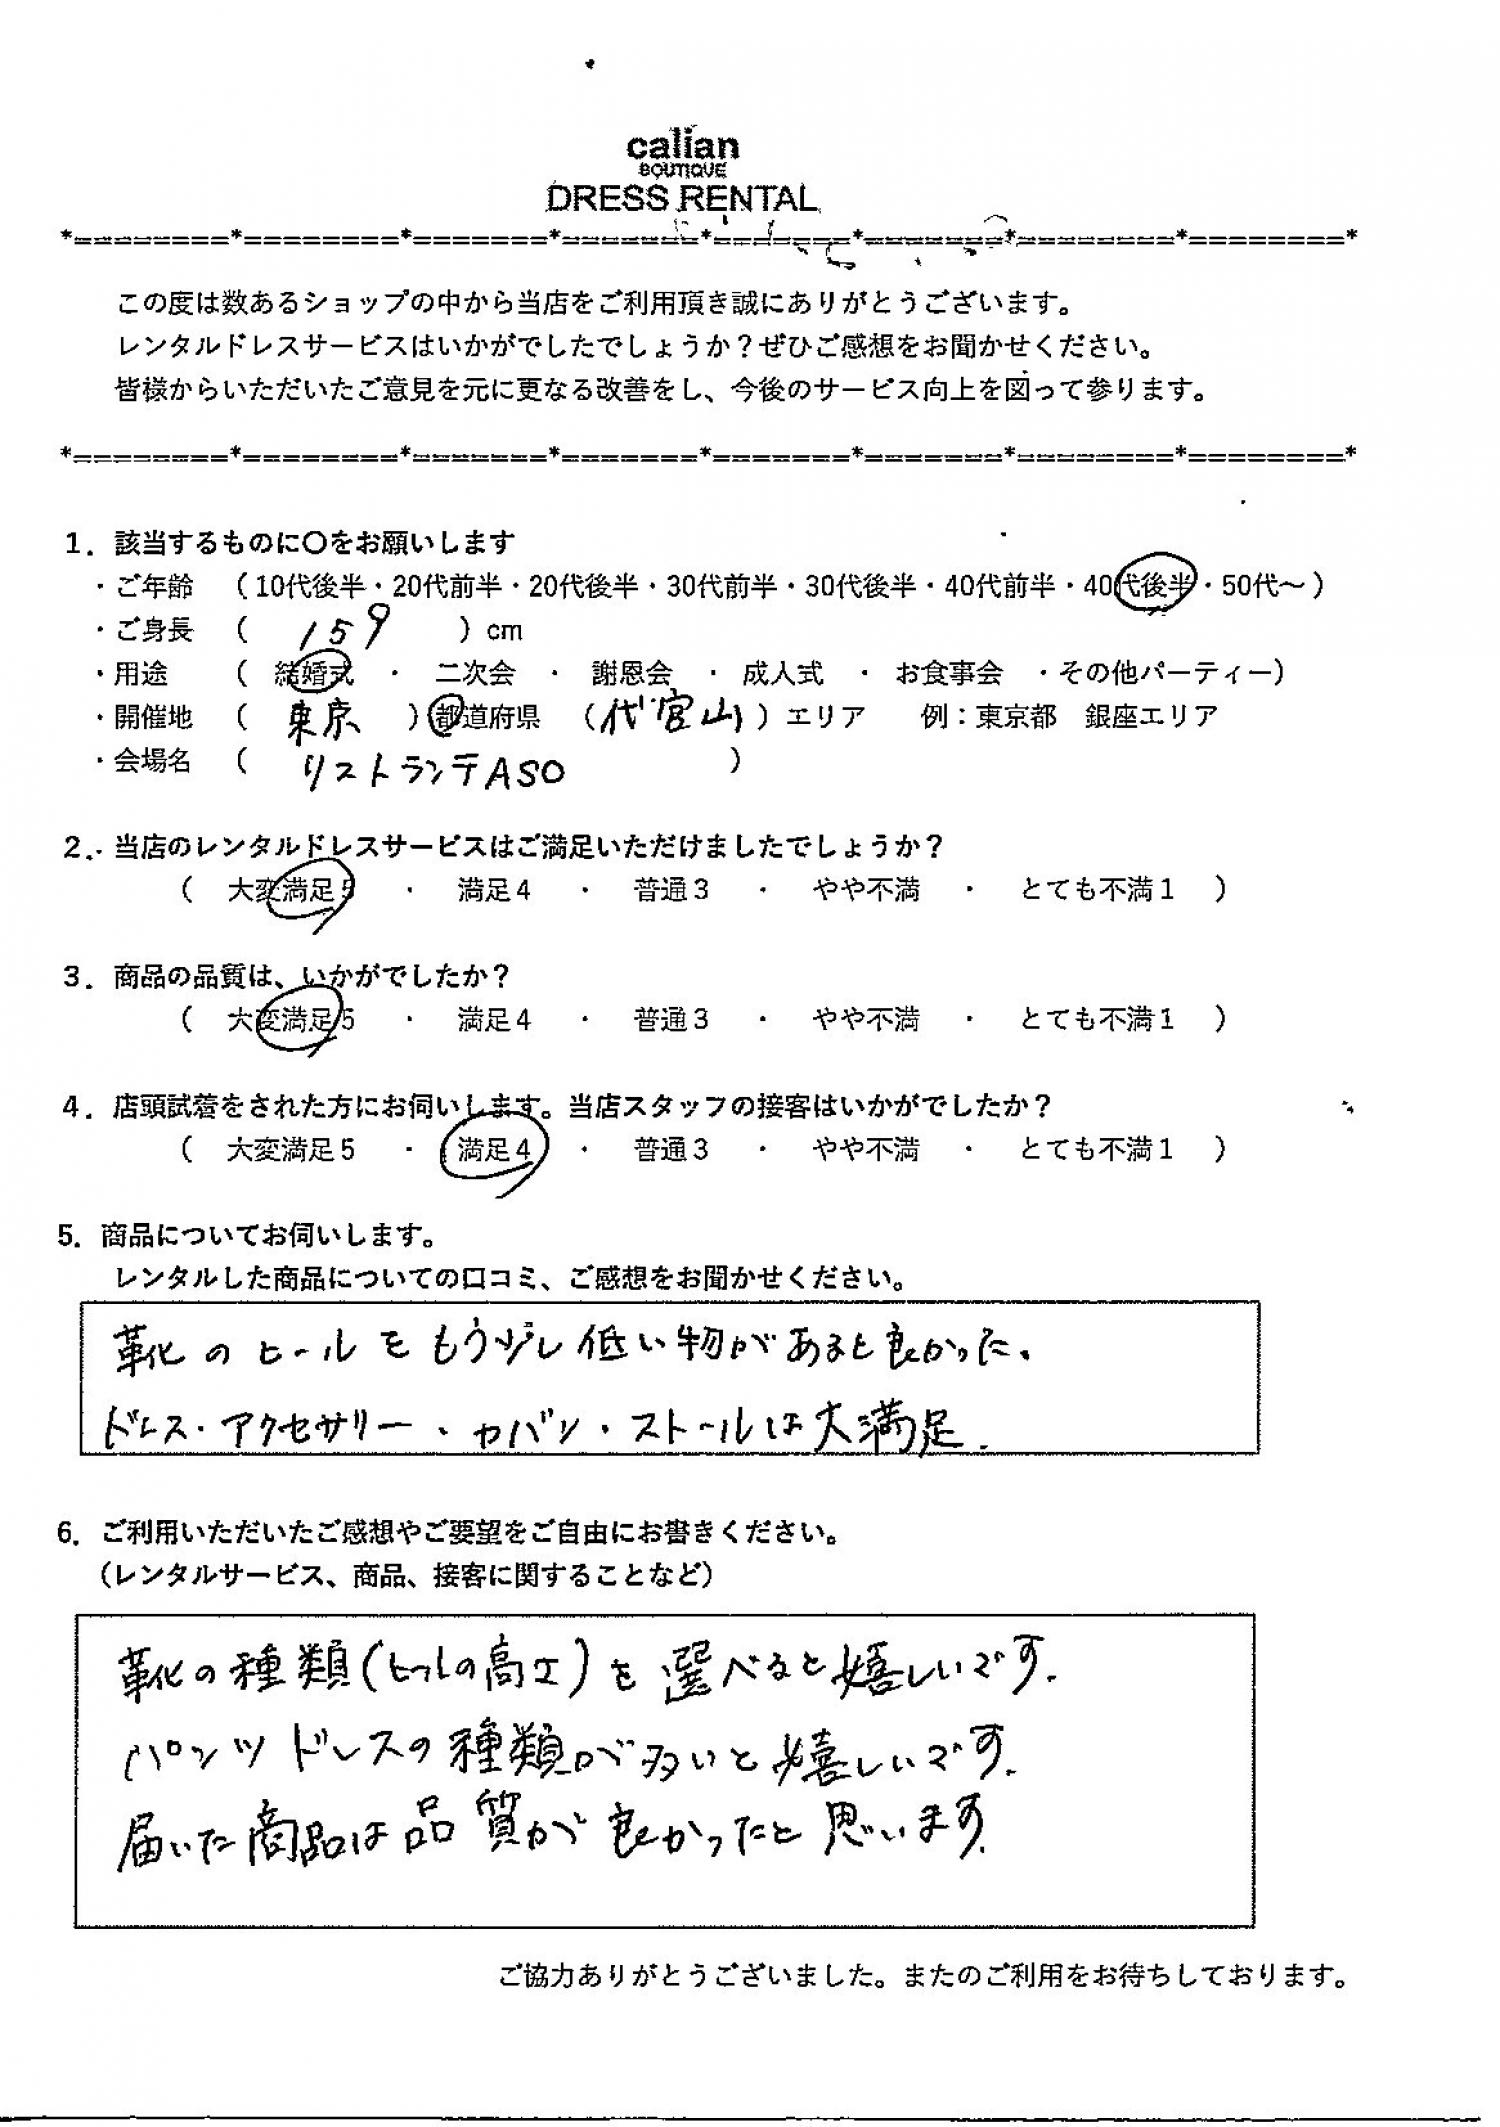 calian
BOUTIQUE
DRESS RENTAL
*========*========*=======*=======*=======*=======*========*========*
この度は数あるショップの中から当店をご利用頂き誠にありがとうございます。
レンタルドレスサービスはいかがでしたでしょうか？ぜひご感想をお聞かせください。
皆様からいただいたご意見を元に更なる改善をし、今後のサービス向上を図って参ります。
*========*========*=======*=======*=======*=======*========*========*
１．該当するものに〇をお願いします
・ご年齢 （10代後半・20代前半・20代後半・30代前半・30代後半・40代前半・40代後半・50代～）
・ご身長 （ 159 ）cm
・用途 （ 結婚式 ・ 二次会 ・ 謝恩会 ・ 成人式 ・ お食事会 ・その他パーティー）
・開催地 （ 東京 ）都道府県 （代官山）エリア 例：東京都 銀座エリア
・会場名 （ リストランテASO ）
２．当店のレンタルドレスサービスはご満足いただけましたでしょうか？
（ 大変満足５ ・ 満足４ ・ 普通３ ・ やや不満 ・ とても不満１ ）
３．商品の品質は、いかがでしたか？
（ 大変満足５ ・ 満足４ ・ 普通３ ・ やや不満 ・ とても不満１ ）
４．店頭試着をされた方にお伺いします。当店スタッフの接客はいかがでしたか？
（ 大変満足５ ・ 満足４ ・ 普通３ ・ やや不満 ・ とても不満１ ）
5．商品についてお伺いします。
レンタルした商品についての口コミ、ご感想をお聞かせください。
靴のヒールをもう少し低い物があると良かった。
ドレス・アクセサリー・カバン・ストールは大満足.
6．ご利用いただいたご感想やご要望をご自由にお書きください。
（レンタルサービス、商品、接客に関することなど）
靴の種類(ヒールの高さ)を選べると嬉しいです.
パンツドレスの種類が多いと嬉しいです.
届いた商品は品質が良かったと思います.
ご協力ありがとうございました。またのご利用をお待ちしております。